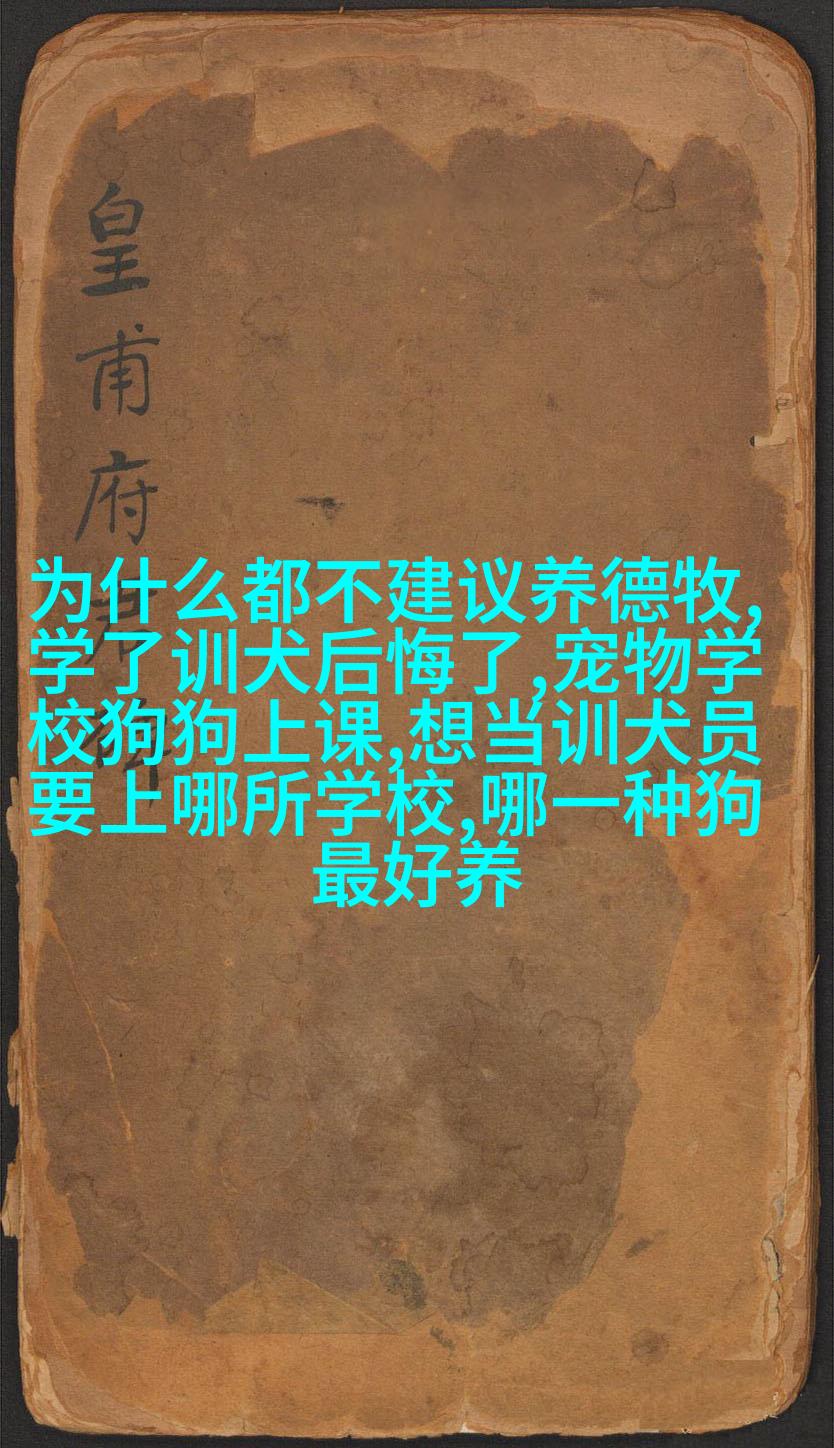 皇甫府君碑
为什么都不建议养德牧,
学了训犬后悔了,宠物学
校狗狗上课,想当训犬员
要上哪所学校,哪一种狗
最好养